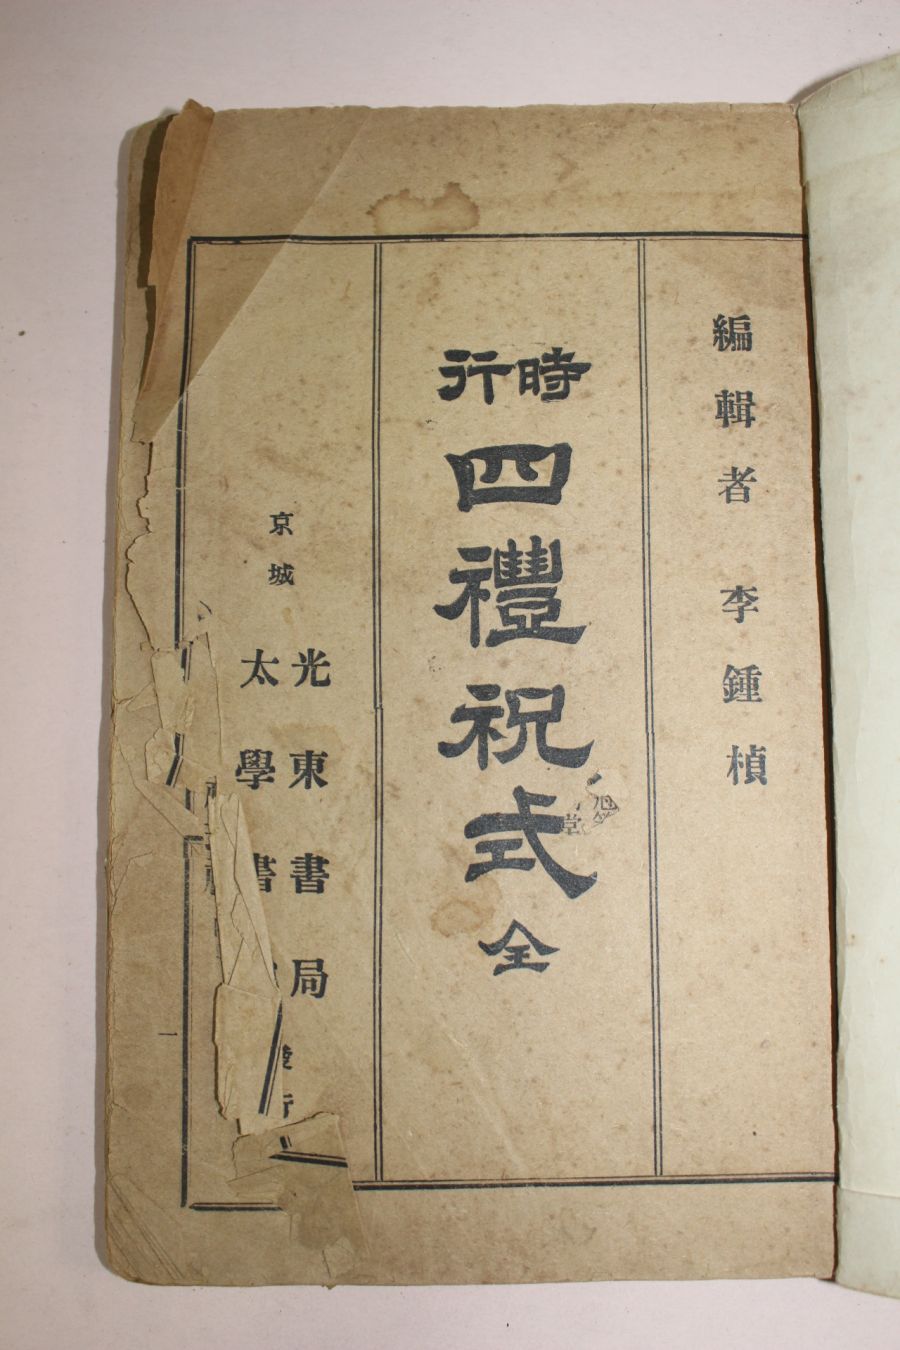 編輯者 李鍾楨
時行
四禮祝式 全
京城
光東書局
太學書
行
一